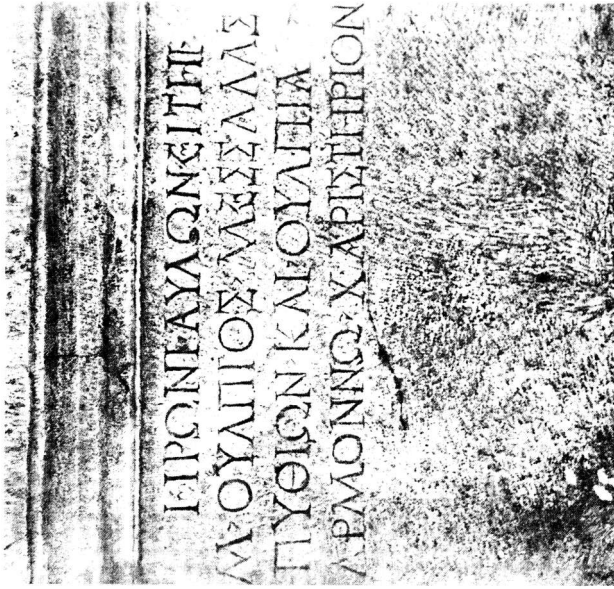 ΗΡΩΝΙ ΑΥΛΩΝΕΙΤΗΙ
Μ·ΟΥΛΠΙΟΣ·ΜΕΣΣΑΛΑΣ
ΠΥΘΙΩΝ·ΚΑΙ ΟΥΛΠΙΑ
ΑΡΜΟΝΝΩ·ΧΑΡΙΣΤΗΡΙΟΝ